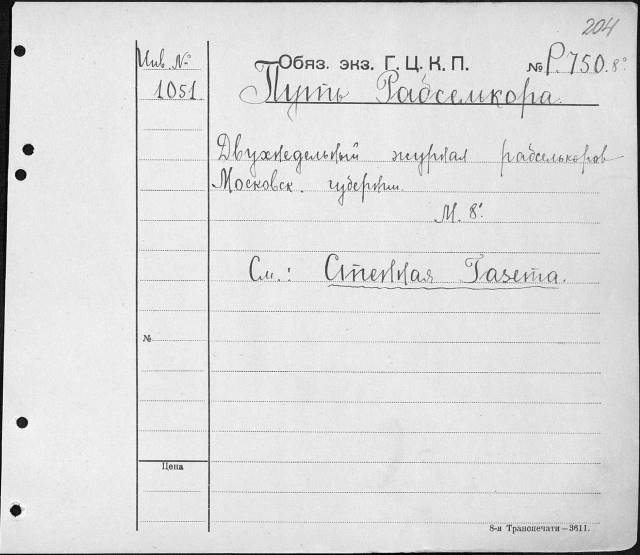 204
Инв. №
1051
Обяз. экз. Г. Ц. К. П. № Р.750. 8°
Путь Рабселькора.
Двухнедельный журнал рабселькоров
Московск. губернии.
М. 8°.
См.: Стенная Газета.
№
Цена
8-я Транспечати—3611.